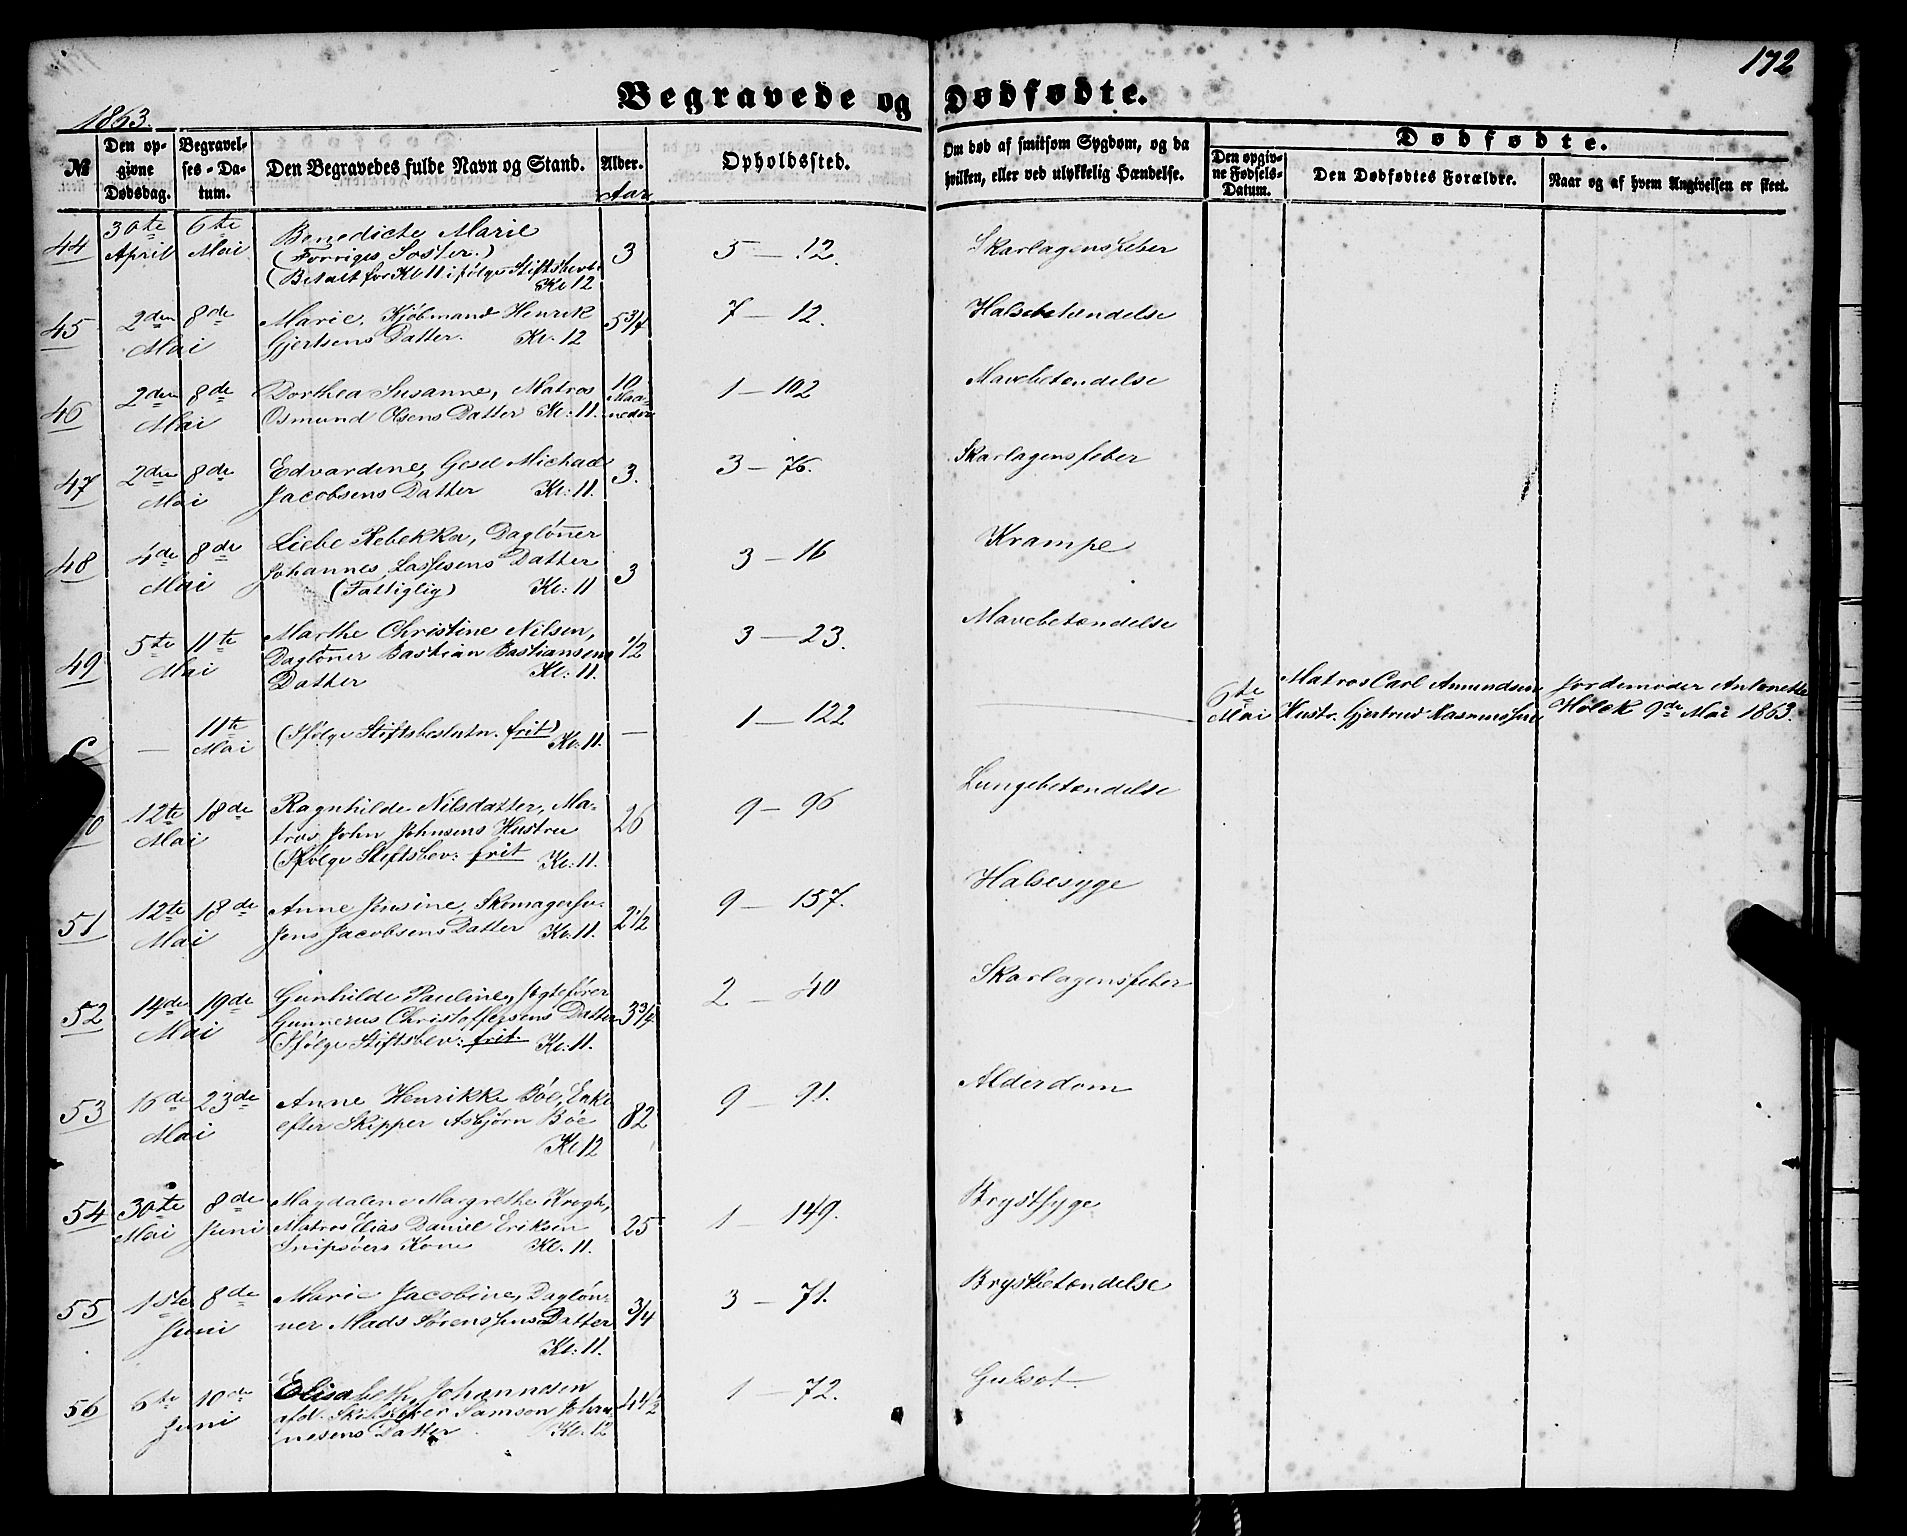 172
Begravede og Dødfødte.
1863.
№
Den opgivne Dødsdag.
Begravelses-Datum.
Den Begravedes fulde Navn og Stand.
Alder.
Aar
Opholdssted.
Om død af smitsom Sygdom, og da hvilken, eller ved ulykkelig Hændelse.
Dødfødte.
Den opgivne Fødsels-Datum.
Den Dødfødtes Forældre.
Naar og af hvem Angivelsen er skeet.
44 30te April 6te Mai Benedicte Marie 3 5 – 12. Skarlagensfeber
(Forriges Søster.)
(Betalt for Kl 11 ifølge Stiftsbevl.
Kl 12
45 2den Mai 8de Marie, Kjøbmand Henrik 5 3/4 7 – 12. Halsebetændelse
Gjertsens Datter. Kl. 12
46 2den Mai 8de Dorthea Susanne, Matros 10 Maaneder 1 – 102 Mavebetændelse
Osmund Olsens Datter Kl: 11.
47 2den Mai 8de Edvardine, Gesel Michael 3. 3 – 76. Skarlagensfeber
Jacobsens Datter Kl: 11.
48 4de Mai 8de Liebe Rebekka, Dagløner 3 3 – 16 Krampe
Johannes Lassesens Datter
(Fattiglig) Kl: 11
49 5te Mai 11te Marthe Christine Nilsen, 1/2 3 – 23. Mavebetændelse
Dagløner Bastian Bastiansens
Datter Kl: 11.
– 11te Mai (Ifølge Stiftsbeslutn. frit) Kl: 11. – 1 – 122 6te Mai Matros Carl Amundsen Jordemoder Antonette
Hustr. Gjertrud Rasmussen Holck 9de Mai 1863.
12te Mai 18de Ragnhilde Nilsdatter, Ma- 26 9 – 96 Lungebetændelse
tros John Johnsens Hustru
(Ifølge Stiftsbev: frit Kl: 11.
51 12te Mai 18de Anne Jensine, Skomagersv. 2 1/2 9 – 157. Halsesyge
Jens Jacobsens Datter Kl: 11.
52 14de Mai 19de Gunhilde Pauline, Jægtefører 3 3/4 2 – 40 Skarlagensfeber
Gunnerus Christoffersens Datter
(Ifølge Stiftsbev: frit. Kl: 11.
53 16de Mai 23de Anne Henrikke Bøe, Enke 82 9 – 91. Alderdom
efter Skipper Asbjørn Bøe
Kl 12
54 30te Mai 8de Juni Magdalene Margrethe Krogh, 25 1 – 149. Brystsyge
Matros Elias Daniel Eriksen
Snipsøers Kone Kl. 11.
55 1ste Juni 8de Marie Jacobine, Dagløn- 3/4 3 – 71. Brystbetændelse
ner Mads Sørensens Datter
Kl: 11.
56 6te Juni 10de Elisabeth Johannesen 44 1/2 1 – 72. Gulsot.
afd. Samson Johan-
nesens Datter Kl. 12